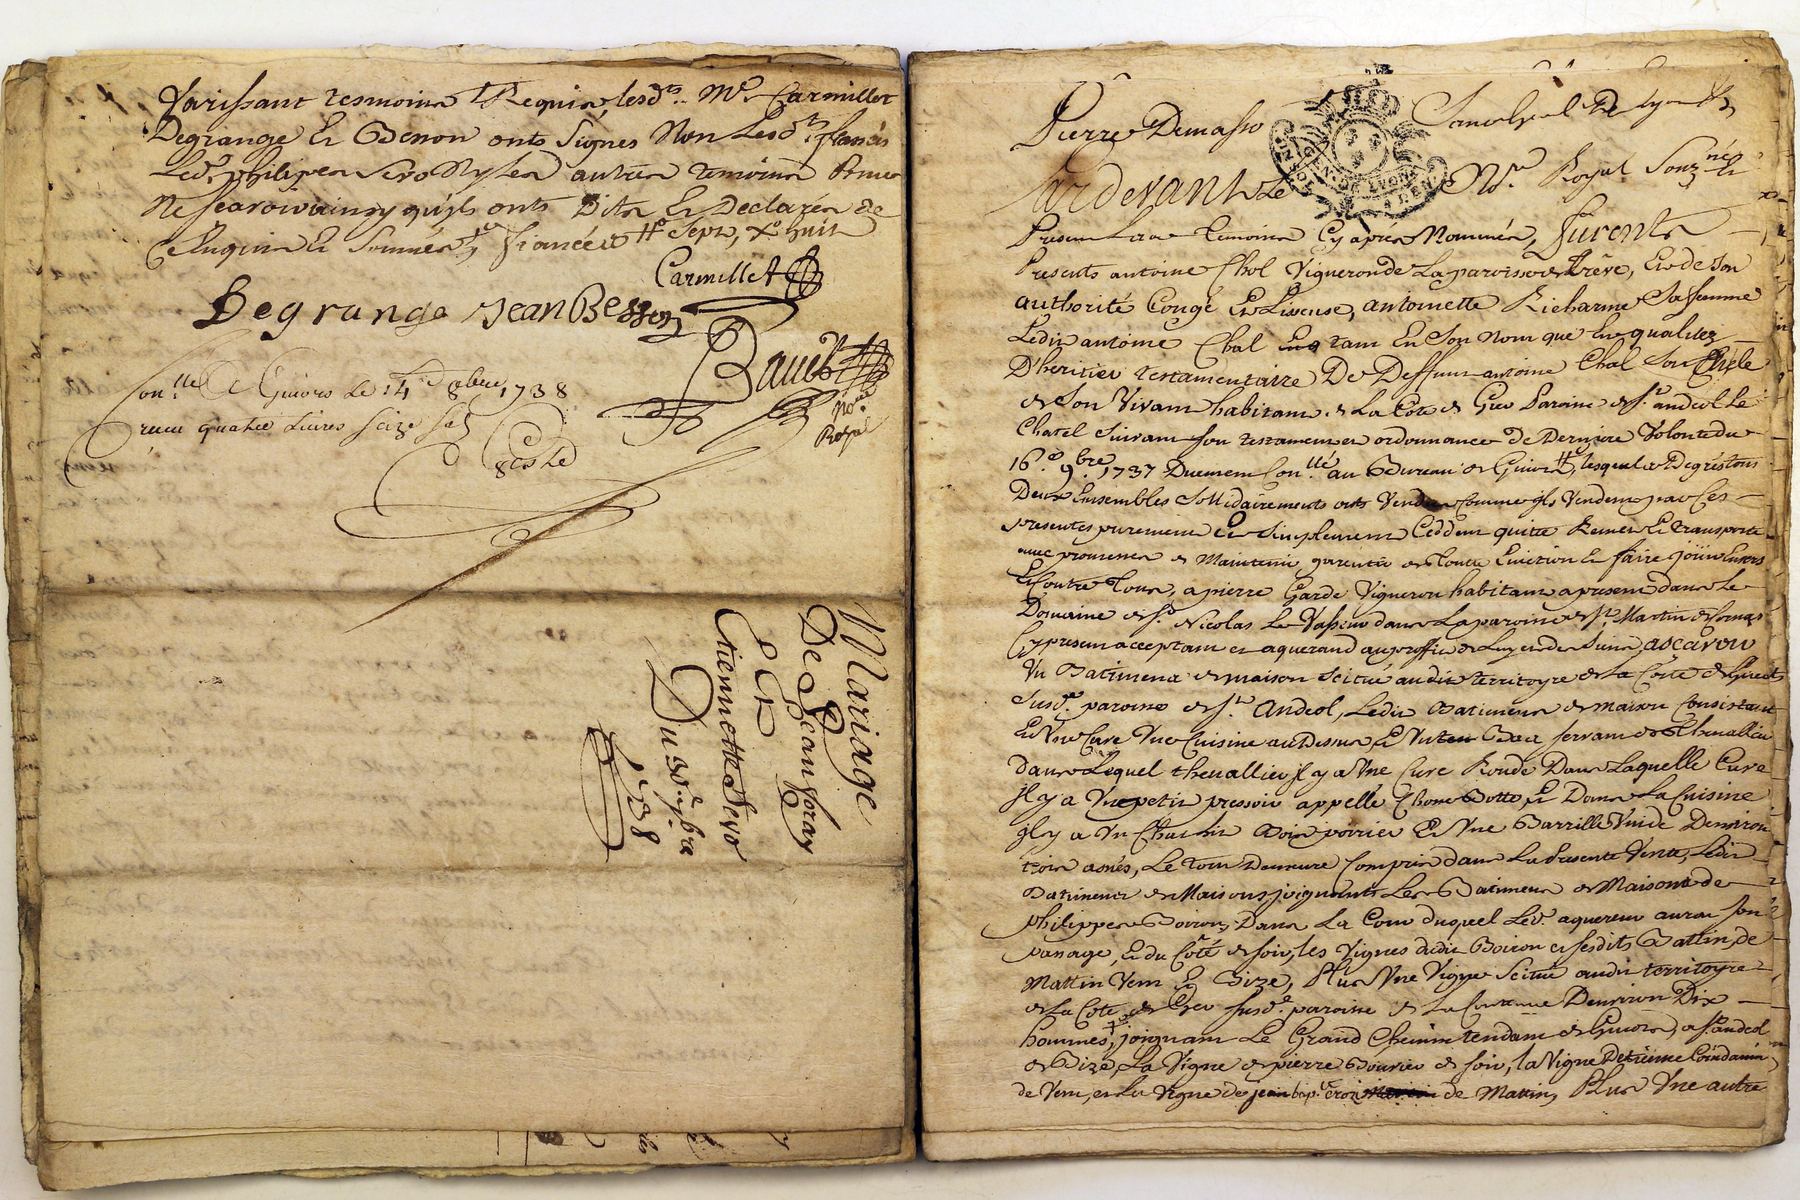 tesmoins Requis, lesdts Mre Carmillet
Degrange Et Benon onts Signés Non Lesdts
Led. philipes Sevo autres temoins
Ne scavoir quils onts Dits Et Declarés de
Enquis Et Sommés
Carmillet
Degrange Jean Besson
Bauet
Nore
Royal
Conllé A Givors Le 14 8bre 1738
recu quatre Livres seize
Mariage
De Jean foray
ET
Etiennette Sevo
Du 30e 7bre
1738
Pierre Demasso Senechal De Lyon
Pardevant Le Nre Royal Souzné Et
Present Les Temoins Cy apres Nommés, furents
Presents antoine Chol Vigneron de La paroisse de Trêve, Et de Son
authorité Congé Et Lissense, antoinette Richarme Sa femme
Ledit antoine Chol tant En Son Nom que En qualités
D'heritier testamentaire De Deffunt antoine Chol Son
de Son Vivant habitant de La Côte de Gier Paroisse de St andeol Le
Chatel Suivant Son testament et ordonnance de Derniere Volonté du
16e 9bre 1737 Duement Conllé au Bureau de Givors, lesquels
Deux Ensembles Sollidairements onts Vendus Comme jls Vendent par Ces
presentes purement Et Simplement Ceddent quitte Remet Et transporte
avec promesses de Maintenir garentir de Toutte Eviction Et faire jouir Envers
Et Contre Tous, a pierre Garde Vigneron habitant a present dans Le
Domaine de Sr Nicolas Le Vasseur dans La paroisse de St Martin de Cornas
Cy present acceptant et aquerand au proffit de Luy et des Siens, ascavoir
Un Batiment de maison Scitué audit territoyre de La Côte de
Susde paroisse de St Andeol, Ledit Batiment de maison Consistant
En Une Cave Une Cuisine au Dessus Et Un Bas servant de Chenallier
dans Lequel Chenallier jl y a Une Cuve Ronde Dans Laquelle Cuve
jl y a Un petit pressoir appellé Et Dans La Cuisine
jl y a Un Bois poirier Et Une Barrille Vuide Denviron
trois asnés, Le tout Demeure Compris dans La Presente Vente, Ledit
Batiment de Maisons joignants Les Batiments de Maisons de
philippes Boiron, Dans La Cour duquel Led. aquereur aura son
passage, Et du Côté de soir, les Vignes dudit Boiron et sesdits Battim. de
Mattin Vent Et Bize, Plus Une Vigne Scitué audit territoyre
de La Côte de Gier susde paroisse de La Contenue Denviron Dix
hommes, joignant Le Grand Chemin tendant de Givors a St andeol
de Bize, La Vigne de pierre Bouvier de soir, la Vigne
de Vent, et La Vigne de jean bapt. de Mattin, Plus Une autre